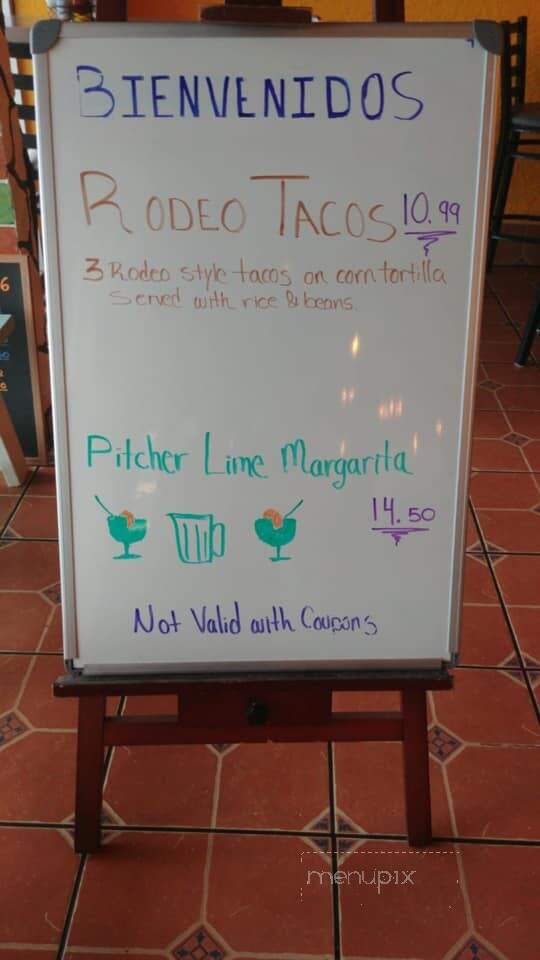 BIENVENIDOS
RODEO TACOS 10.99
3 Rodeo style tacos on corn tortilla
Served with rice & beans.
Pitcher Lime Margarita
14.50
Not Valid with Coupons
menupix